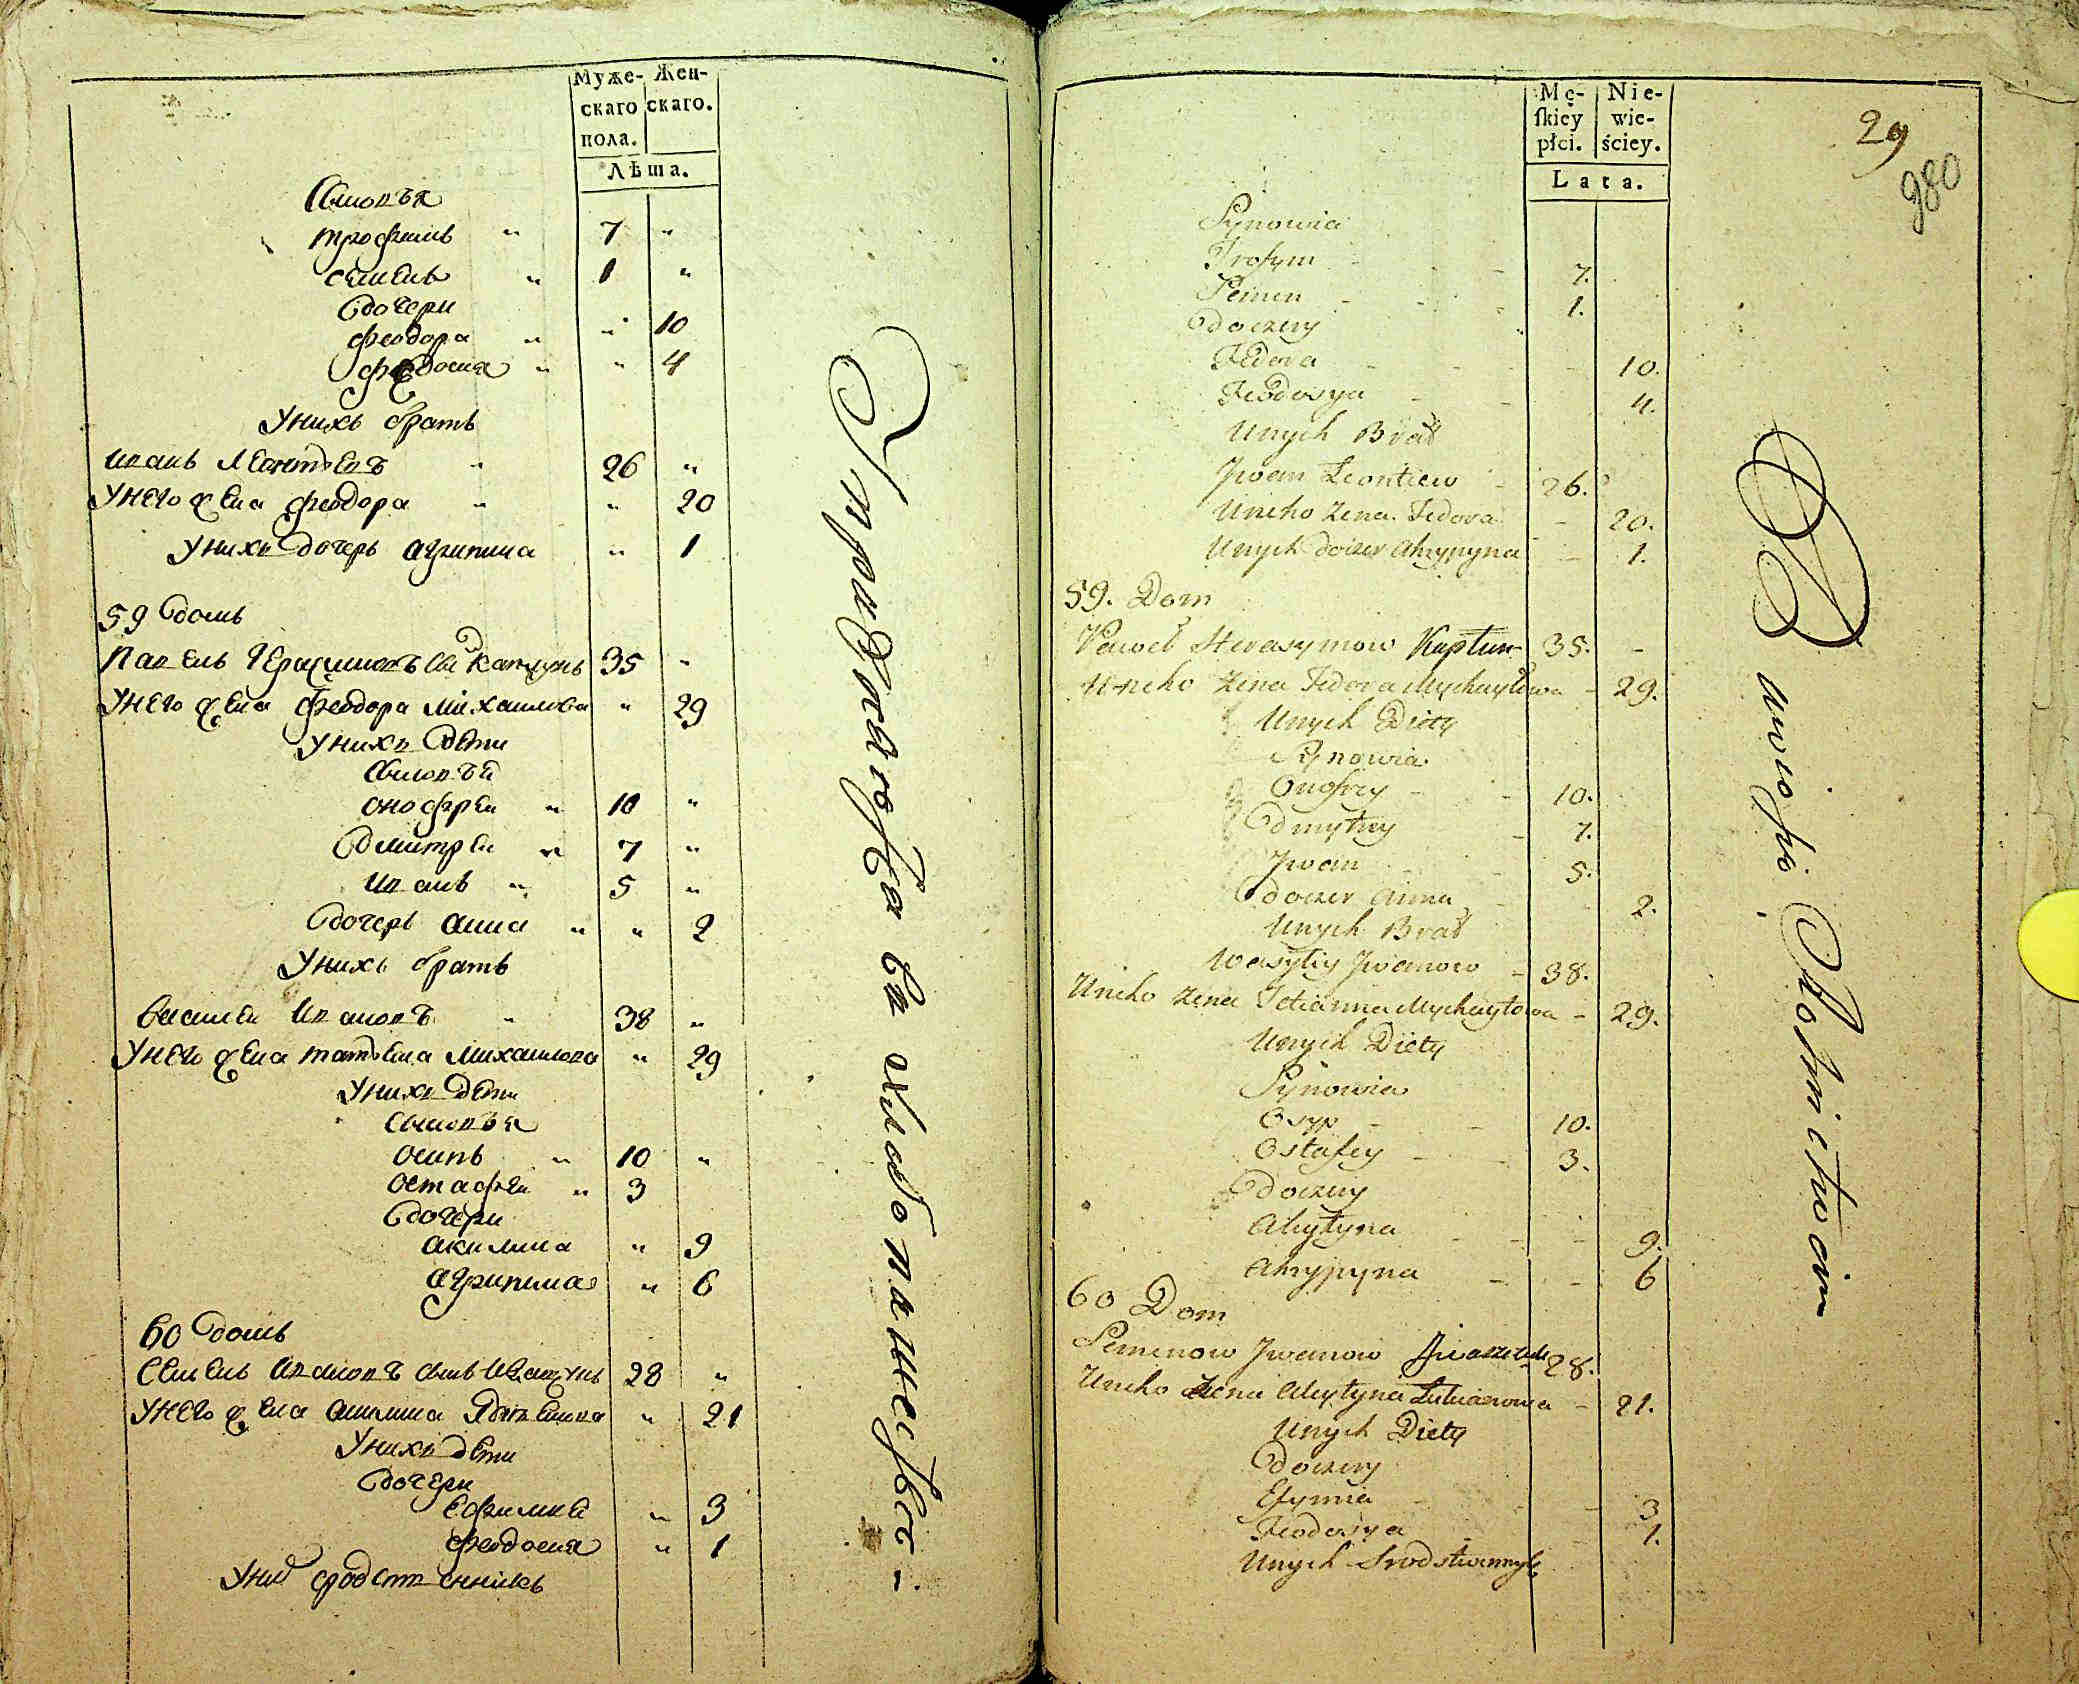 Муже- Жен-
скаго скаго.
пола.
Лѣта.
Сыновья
трофимъ " 7 "
семенъ " 1 "
дочери
феодора " " 10
феодосия " " 4
Унихъ братъ
иванъ Леонтьевъ " 26 "
Унего жена феодора " " 20
Унихъ дочерь агрипина " 1
59 домъ
Павелъ Герасимовъ сынъ Каптунъ 35 "
Унего жена феодора михаилова " 29
Унихъ дети
Сыновья
онофрей " 10 "
дмитрей " 7 "
иванъ " 5 "
дочерь анна " " 2
Унихъ братъ
василей ивановъ " 38 "
Унего жена татьяна михаилова " 29
Унихъ дети
сыновья
осипъ " 10 "
остафей " 3
дочери
акилина " 9
агрипина " 6
60 домъ
Семенъ ивановъ сынъ 28 "
Унего жена акилина " 21
Унихъ дети
дочери
ефимия " 3
феодосия " 1
Унихъ сродственникъ
Mę- Nie-
ſkiey wie-
płci. ściey.
Lata.
29
980
Synowia
Trofym 7.
Semen 1.
doczery
Fedora 10.
Feodosya 4.
Unych Brat
Jwan Leontiew 26.
Uneho Zena Fedora 20.
Unych doczer Ahrypyna 1.
59. Dom
Paweł Herasymow Kaptun 35. -
Uneho Zena Fedora Mychayłowa - 29.
Unych Diety
Synowia
Onofrey 10.
dmytrey 7.
Jwan 5.
doczer Anna 2.
Unych Brat
Wasyliy Jwanow - 38.
Uneho Zena Tatianna Mychayłowa - 29.
Unych Diety
Synowia
Osyp 10.
Ostafey 3.
doczery
Akylyna 9.
Ahrypyna 6
60 Dom
Semenow Jwanow 28.
Uneho Zena Akylyna 21.
Unych Diety
doczery
Efymia 3
Feodosya 1.
Unych Srodstwennyk